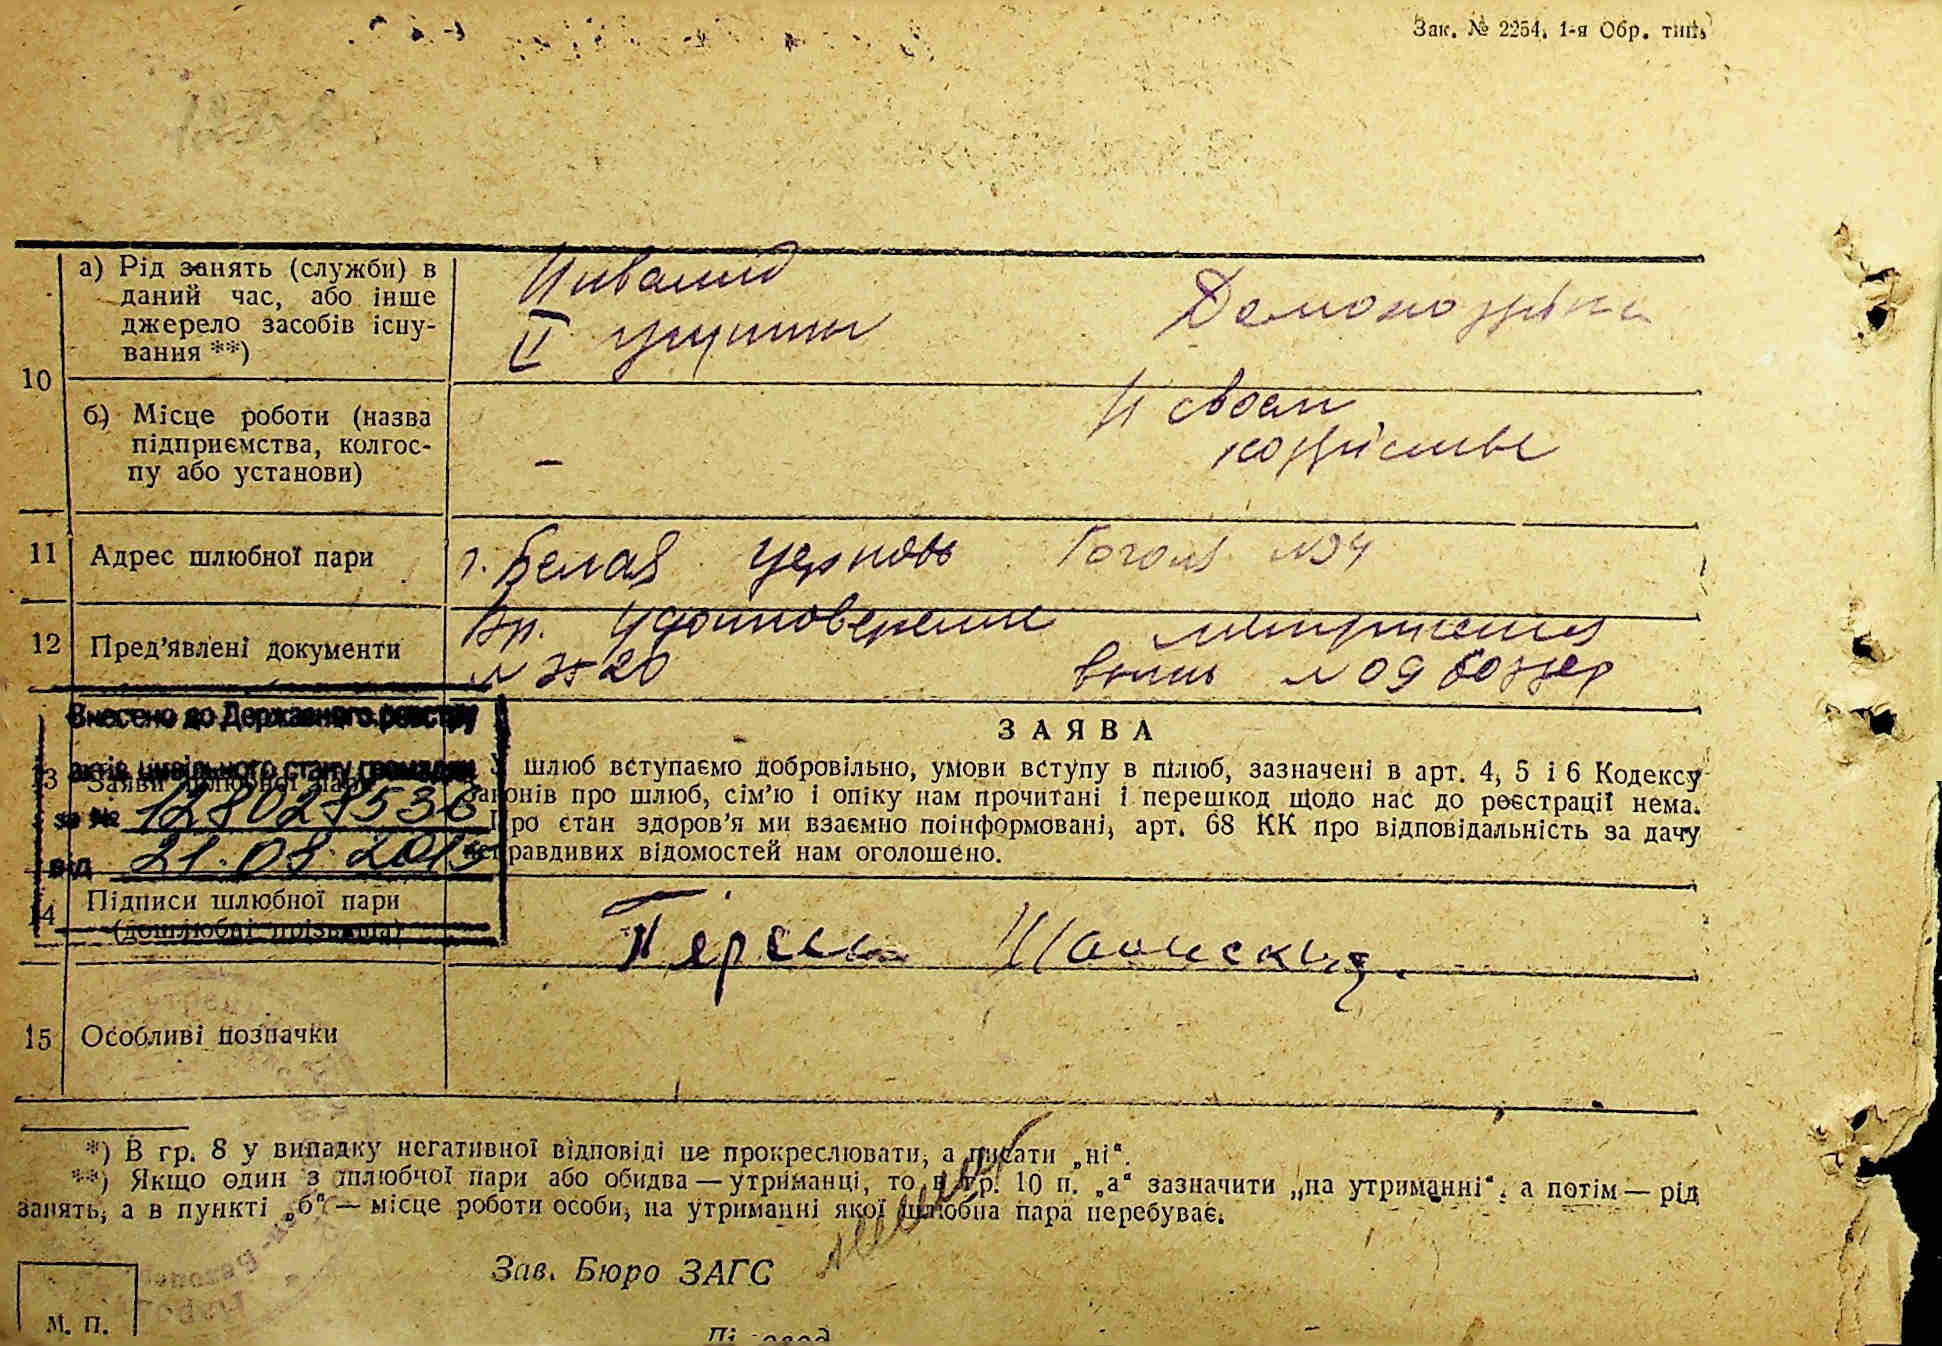 Зак. № 2254. 1-я Обр. тип.
10
а) Рід занять (служби) в
даний час, або інше
джерело засобів існу-
вання **)
Инвалид
II группы
Домохозяйка
б) Місце роботи (назва
підприємства, колгос-
пу або установи)
–
В своем
хозяйстве
11
Адрес шлюбної пари
г. Белая Церковь Гоголя №34
12
Пред'явлені документи
Вр. Удостоверение
метрическая
№
20
выпись № 09
Внесено до Державного реєстру
актів цивільного стану громадян
за №
від
13
Заяви шлюбної пари
ЗАЯВА
У шлюб вступаємо добровільно, умови вступу в шлюб, зазначені в арт. 4, 5 і 6 Кодексу
законів про шлюб, сім'ю і опіку нам прочитані і перешкод щодо нас до реєстрації нема.
Про стан здоров'я ми взаємно поінформовані, арт. 68 КК про відповідальність за дачу
неправдивих відомостей нам оголошено.
14
Підписи шлюбної пари
(дошлюбні прізвища)
15
Особливі позначки
*) В гр. 8 у випадку негативної відповіді не прокреслювати, а писати „ні“.
**) Якщо один з шлюбної пари або обидва — утриманці, то в гр. 10 п. „а“ зазначити „на утриманні“, а потім — рід
занять, а в пункті „б“ — місце роботи особи, на утриманні якої шлюбна пара перебуває.
Зав. Бюро ЗАГС
М. П.